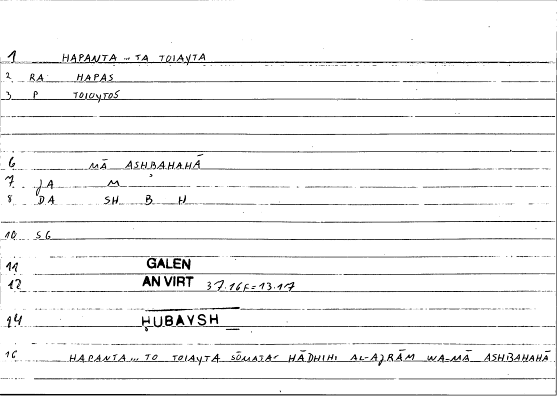 1 HAPANTA ... TA TOIAYTA
2 RA HAPAS
3 P TOIOYTOS
6 MĀ ASHBAHAHĀ
7 JA M
8 DA SH B H
10 SG
11 GALEN
12 AN VIRT 37.16F=13.17
14 ḤUBAYSH
16 HAPANTA ... TO TOIAYTA SŌMATA HĀDHIHI AL-AJRĀM WA-MĀ ASHBAHAHĀ